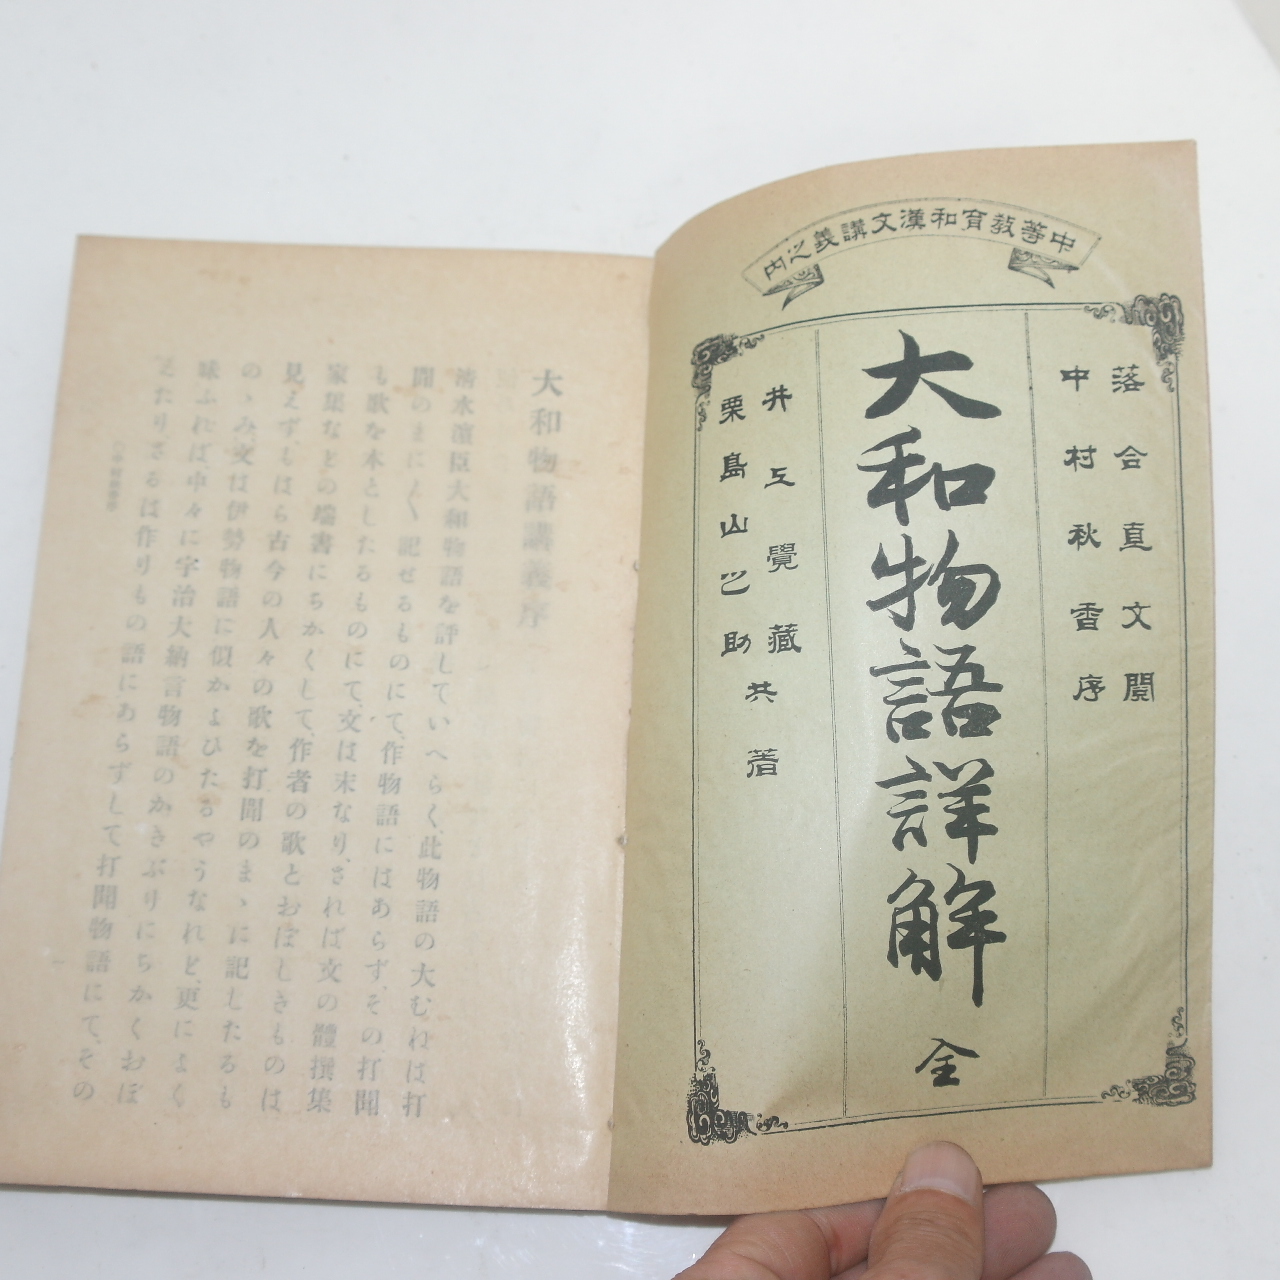 中等教育和漢文講義之内
落合直文閲
中村秋香序
大和物語詳解
全
井上覺藏
栗島山之助
共著
大和物語講義序
清水濱臣大和物語を評していへらく、此物語の大むねは打
聞のまに〳〵記せるものにて、作物語にはあらず、その打聞
も歌を本としたるものにて、文は末なり、されば文の體撰集
家集などの端書にちかくして、作者の歌とおぼしきものは
見えず、もはら古今の人々の歌を打聞のまゝに記したるも
のゝみ、文は伊勢物語に似かよひたるやうなれど、更によく
味ふれば、中々に宇治大納言物語のかきぶりにちかくおぼ
えたりさるは作りもの語にあらずして打聞物語にて、その